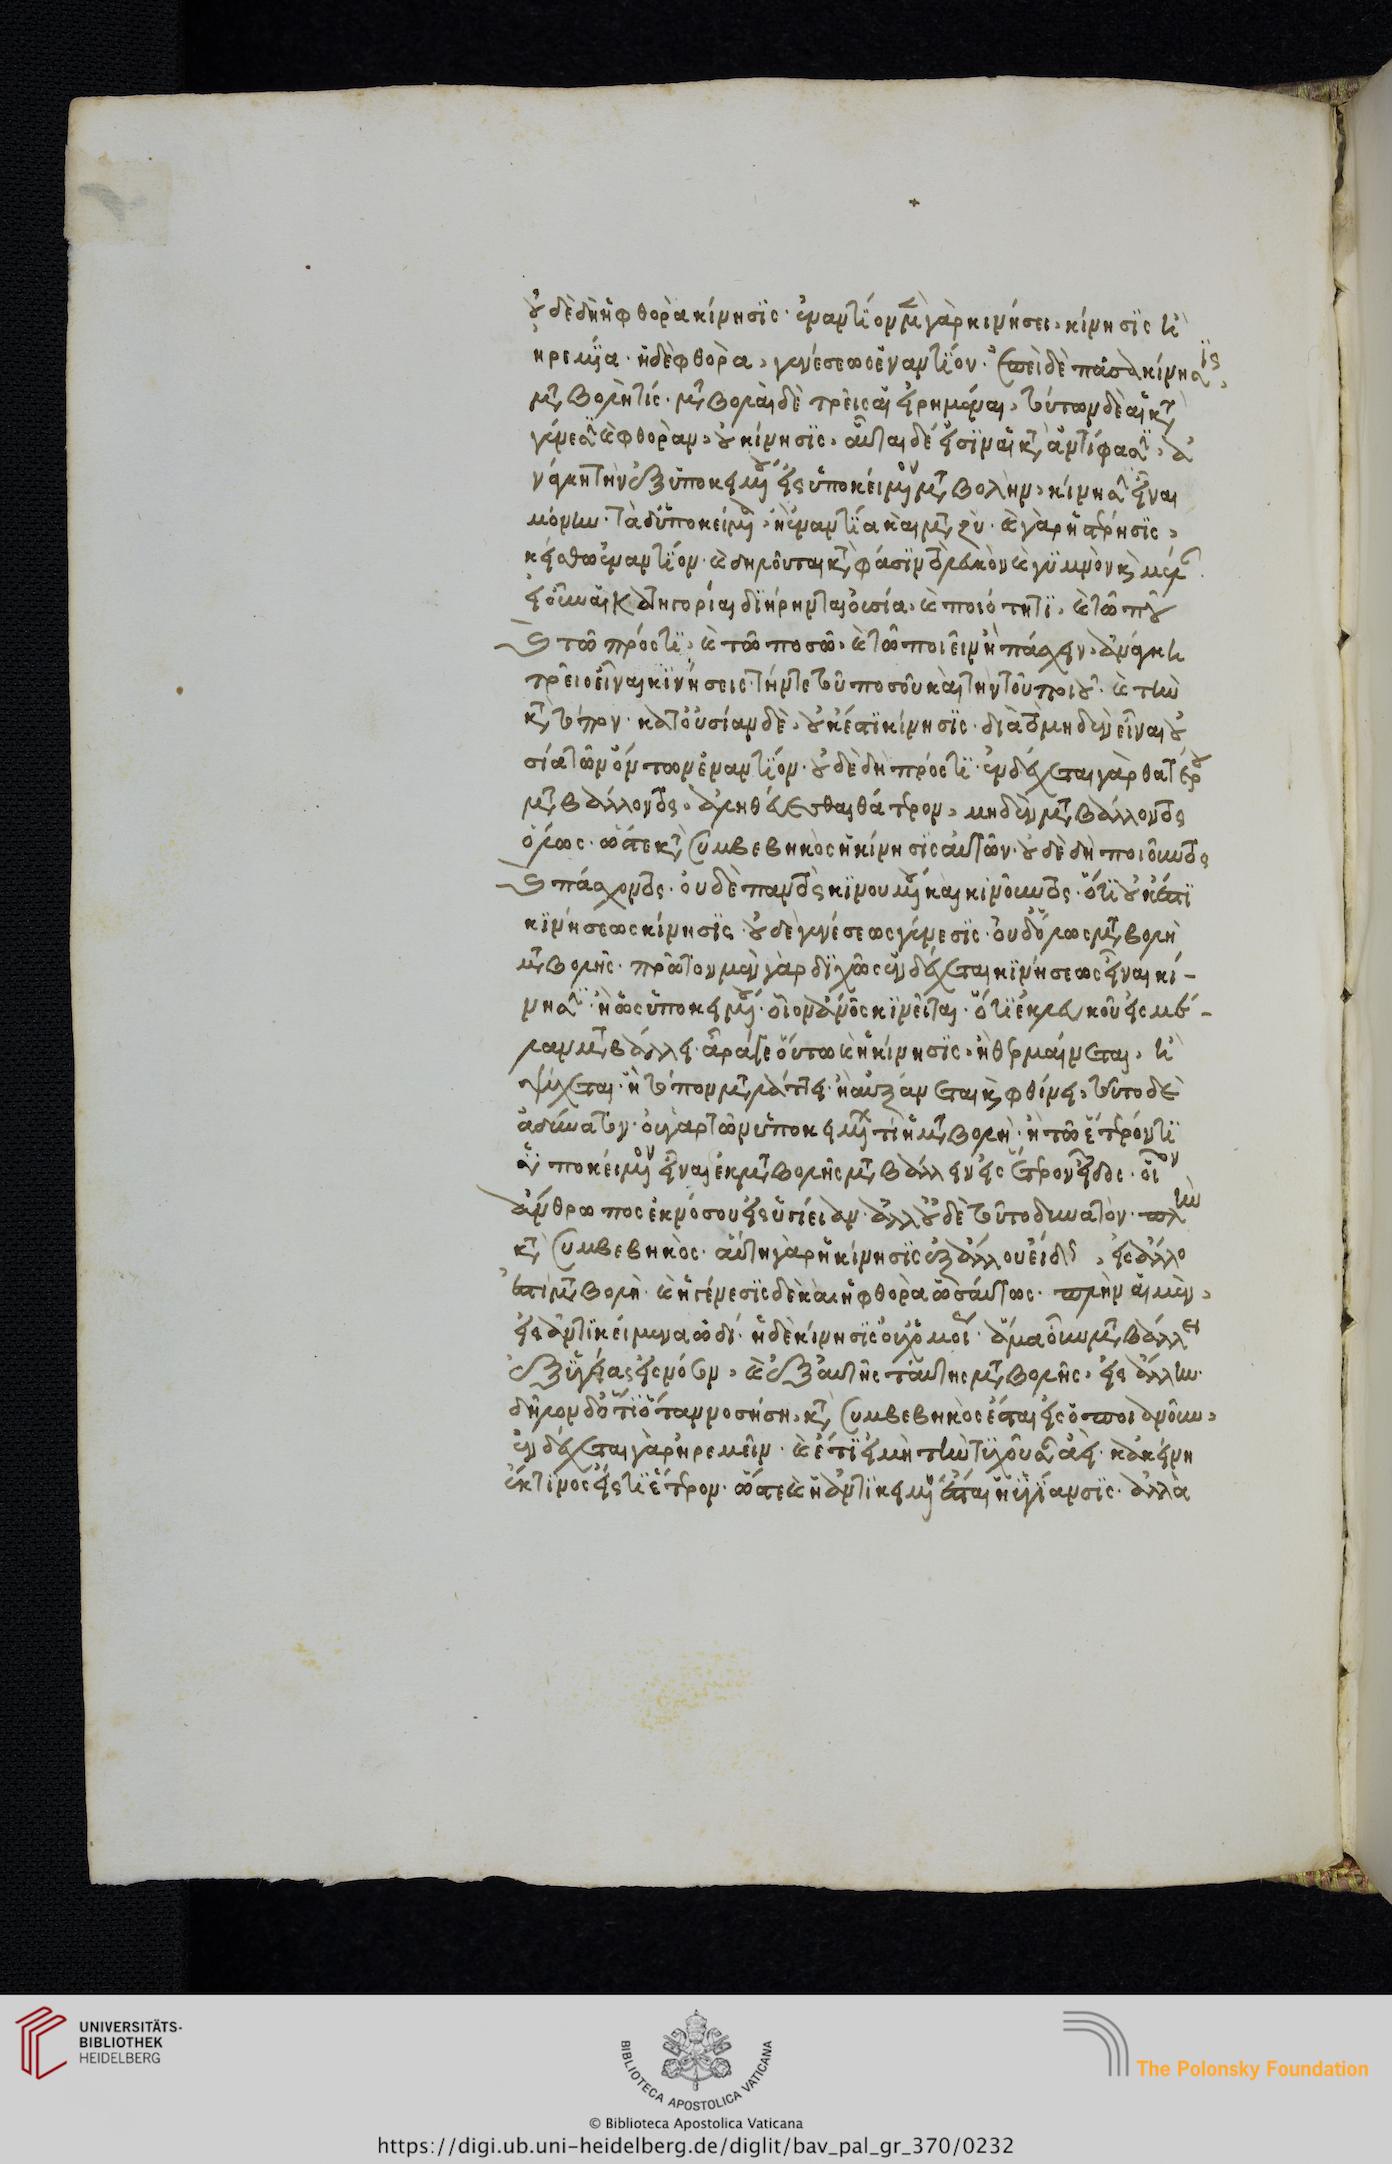 οὐδὲ δὴ ἡ φθορὰ κίνησις· ἐναντίον μὲν γὰρ κινήσει, κίνησις ἢ
ἠρεμία· ἡ δὲ φθορὰ, γενέσεως ἐναντίον· ἐπεὶ δὲ πᾶσα κίνησις,
μεταβολὴ τίς· μεταβολαὶ δὲ τρεῖς αἱ εἰρημέναι, τούτων δὲ αἱ κατὰ
γένεσιν καὶ φθορὰν, οὐ κίνησις, αὗται δέ εἰσιν αἱ κατὰ ἀντίφασιν, ἀ
νάγκη τὴν ἐξ ὑποκειμένου εἰς ὑποκείμενον μεταβολὴν, κίνησιν εἶναι
μόνην· τὰ δ' ὑποκείμενα, ἢ ἐναντία καὶ μεταξὺ· καὶ γὰρ ἡ στέρησις,
κείσθω ἐναντίον· καὶ δηλοῦται καταφάσιν τὸ λευκὸν καὶ γυμνὸν καὶ μέλαν
εἰ οὖν αἱ κατηγορίαι διῄρηνται οὐσία, καὶ ποιότητι, καὶ τῶ ποῦ
καὶ τῶ πρός τι, καὶ τῶ ποσῶ, καὶ τῶ ποιεῖν ἢ πάσχειν, ἀνάγκη
τρεῖς εἶναι κινήσεις· τήν τε τοῦ ποσοῦ καὶ τὴν τοῦ ποιοῦ· καὶ τὴν
κατὰ τόπον· κατ' οὐσίαν δὲ, οὐκ ἔστι κίνησις· διὰ τὸ μηδὲν εἶναι οὐ
σία τῶν ὄντων ἐναντίον· οὐδὲ δὴ πρός τι· ἐνδέχεται γὰρ θατέρου
μεταβάλλοντος, ἀληθεύεσθαι θάτερον, μηδὲν μεταβάλλοντος
ὅλως· ὥστε κατὰ συμβεβηκὸς ἡ κίνησις αὐτῶν· οὐδὲ δὴ ποιοῦντος
καὶ πάσχοντος· οὐδὲ παντὸς κινουμένου καὶ κινοῦντος· ὅτι οὐκ ἔστι
κινήσεως κίνησις· οὐδὲ γενέσεως γένεσις· οὐδ' ὅλως μεταβολὴ
μεταβολῆς· πρῶτον μὲν γὰρ διχῶς ἐνδέχεται κινήσεως εἶναι κί-
νησιν· ἢ ὡς ὑποκειμένου· οἷον ἄνθρωπος κινεῖται· ὅτι ἐκ λευκοῦ εἰς μέ-
λαν μεταβάλλει· ἆρά γε οὕτω καὶ ἡ κίνησις, ἢ θερμαίνεται, ἢ
ψύχεται· ἢ τόπον μεταλλάττει· ἢ αὐξάνεται καὶ φθίνει, τοῦτο δὲ
ἀδύνατον· οὐ γὰρ τῶν ὑποκειμένων τὶ ἡ μεταβολὴ· ἢ τῶ ἕτερόν τι
ὑποκείμενον εἶναι ἐκ μεταβολῆς μεταβάλλειν εἰς ἕτερον εἶδος· οἷον
ἄνθρωπος ἐκ νόσου εἰς ὑγίειαν· ἀλλ' οὐδὲ τοῦτο δυνατὸν· πλὴν
κατὰ συμβεβηκὸς· αὕτη γὰρ ἡ κίνησις ἐξ ἄλλου εἴδους, εἰς ἄλλο
ἐστὶ μεταβολὴ· καὶ ἡ γένεσις δὲ καὶ ἡ φθορὰ ὡσαύτως· πλὴν αἱ μὲν,
εἰς ἀντικείμενα ὡδί· ἡ δὲ κίνησις οὐχ ὁμοίως· ἅμα οὖν μεταβάλλει
ἐξ ὑγιείας εἰς νόσον, καὶ ἐξ αὐτῆς ταύτης μεταβολῆς, εἰς ἄλλην·
δῆλον δὲ ὅτι ὅταν νοσήσῃ, κατὰ συμβεβηκὸς ἔσται εἰς ὁποιανοῦν,
ἐνδέχεται γὰρ ἠρεμεῖν· καὶ ἔτι εἰ μὴ τὴν τυχοῦσαν ἀεί· κἀκείνη
ἔκ τινος εἴς τι ἕτερον· ὥστε καὶ ἡ ἀντικειμένη ἔσται ἡ ὑγίανσις· ἀλλὰ
UNIVERSITÄTS-
BIBLIOTHEK
HEIDELBERG
BIBLIOTECA APOSTOLICA VATICANA
The Polonsky Foundation
© Biblioteca Apostolica Vaticana
https://digi.ub.uni-heidelberg.de/diglit/bav_pal_gr_370/0232